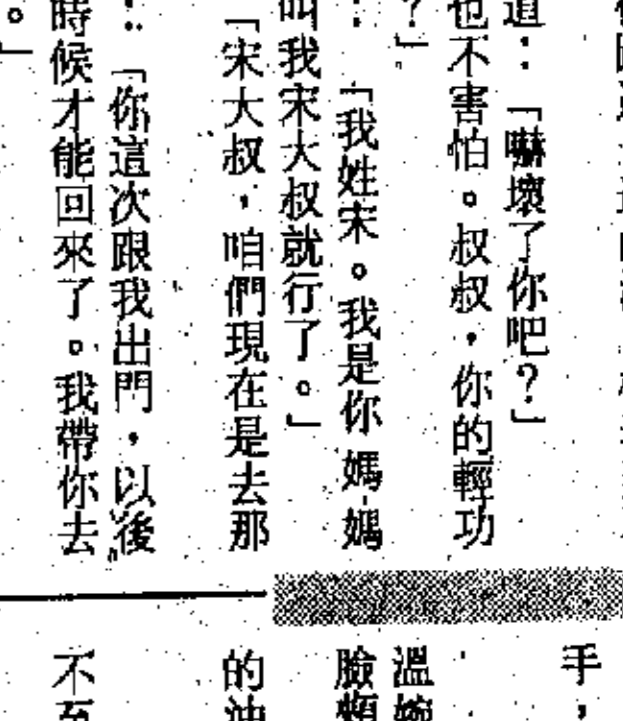 道：「嚇壞了你吧？」
也不害怕。叔叔，你的輕功
？」
：「我姓宋。我是你媽媽
叫我宋大叔就行了。」
「宋大叔，咱們現在是去那
：「你這次跟我出門，以後
時候才能回來了。我帶你去
。」
手，
溫婉
臉頰
的油
不至